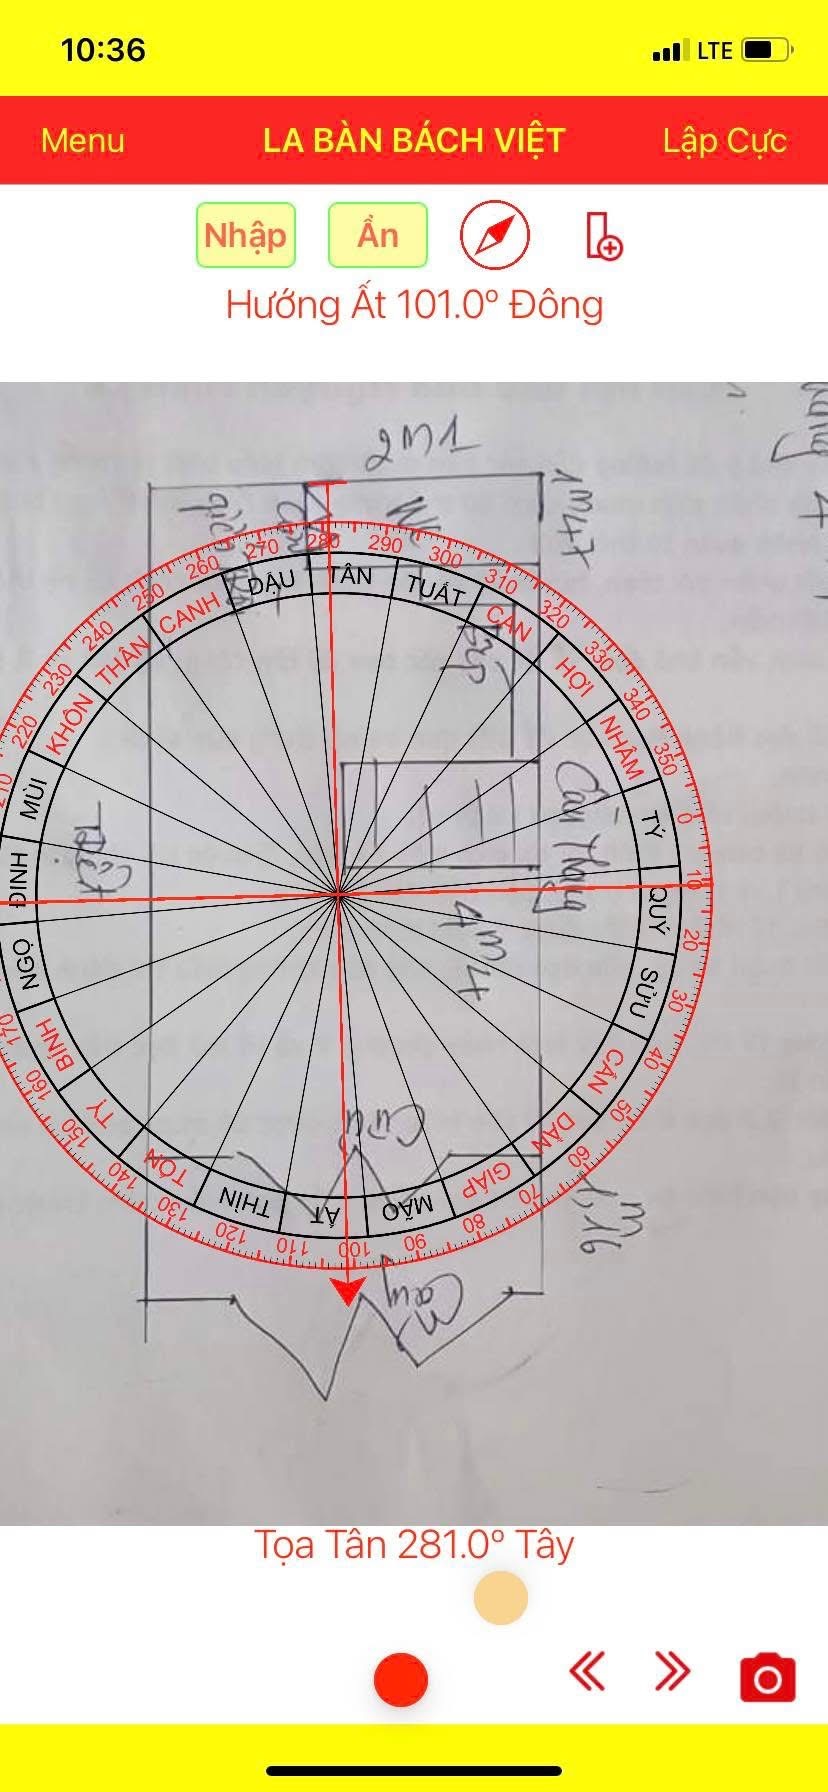 10:36
LTE
Menu
LA BÀN BÁCH VIỆT
Lập Cực
Nhập
Ẩn
Hướng Ất 101.0° Đông
2m1
1m47
WC
Bếp
Cầu thang
4m4
Toilet
Cửa
1,16 m
Cửa
TÂN
TUẤT
CÀN
HỢI
NHÂM
TÝ
QUÝ
SỬU
CẤN
DẦN
GIÁP
MÃO
ẤT
THÌN
TỐN
TỴ
BÍNH
NGỌ
ĐINH
MÙI
KHÔN
THÂN
CANH
DẬU
280
290
300
310
320
330
340
350
0
10
20
30
40
50
60
70
80
90
100
110
120
130
140
150
160
170
220
230
240
250
260
270
Tọa Tân 281.0° Tây